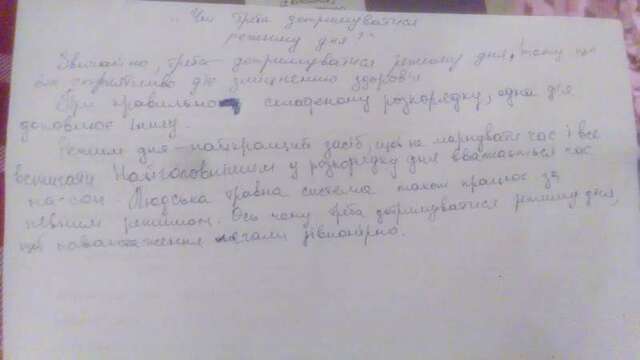 „Чи треба дотримуватися
режиму дня?"
Звичайно, треба дотримуватися режиму дня, тому що
він сприятливо діє зміцненню здоров'я
При правильно складеному розпорядку, одна дія
доповнює іншу.
Режим дня – найкращий засіб, щоб не марнувати час і все
встигати Найголовнішим у розпорядку дня вважається час
на сон. Людська травна система також працює за
певним режимом. Ось чому треба дотримуватися режиму дня,
щоб навантаження лягали рівномірно.